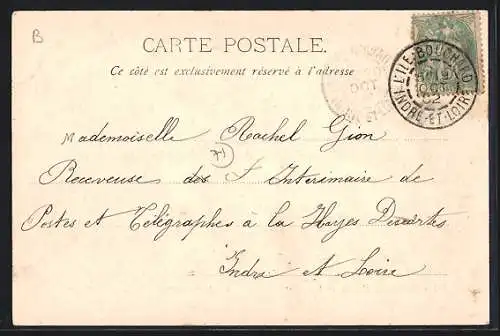 B
CARTE POSTALE.
Ce côté est exclusivement réservé à l'adresse
L'ILE-BOUCHARD
19
OCT
02
INDRE-ET-LOIRE
OCT
Mademoiselle Rachel Gion
Receveuse des Intérimaire de
Postes et Télégraphes à la Hayes Descartes
Indre et Loire